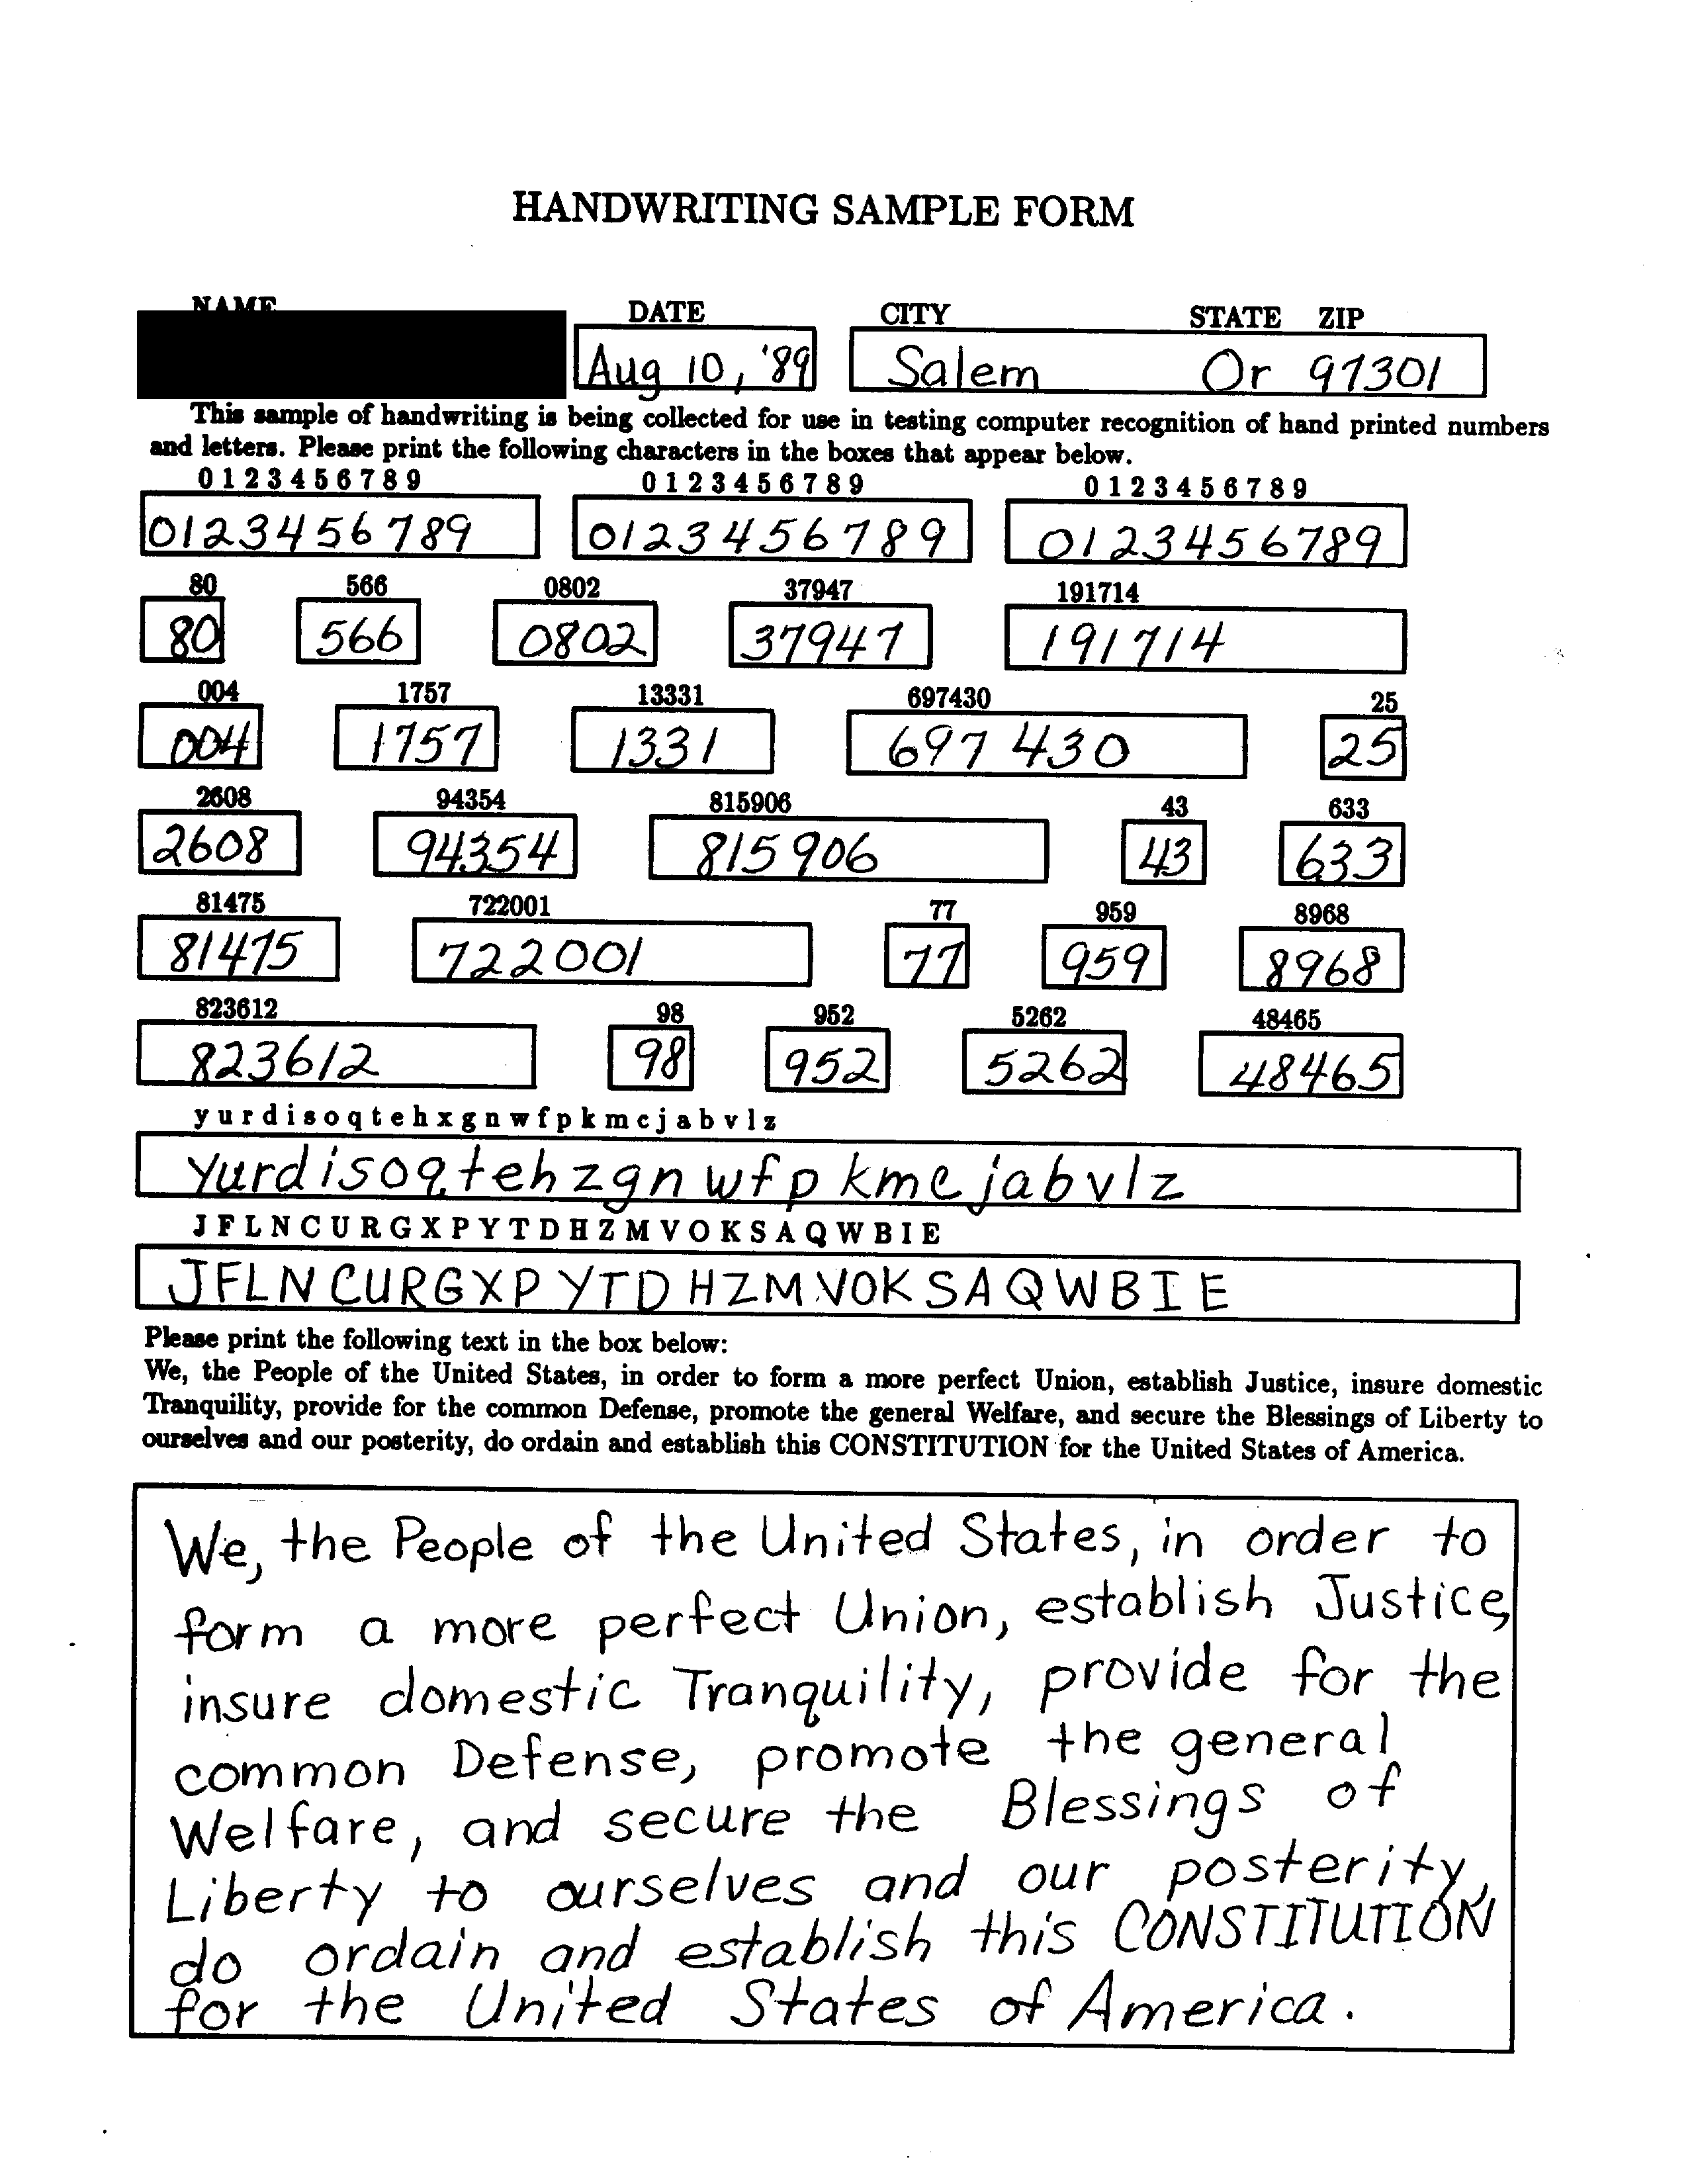 HANDWRITING SAMPLE FORM
NAME DATE CITY STATE ZIP
Aug 10, '89 Salem Or 97301
This sample of handwriting is being collected for use in testing computer recognition of hand printed numbers
and letters. Please print the following characters in the boxes that appear below.
0 1 2 3 4 5 6 7 8 9 0 1 2 3 4 5 6 7 8 9 0 1 2 3 4 5 6 7 8 9
0123456789 0123456789 0123456789
80 566 0802 37947 191714
80 566 0802 37947 191714
004 1757 13331 697430 25
004 1757 1331 697430 25
2608 94354 815906 43 633
2608 94354 815906 43 633
81475 722001 77 959 8968
81475 722001 77 959 8968
823612 98 952 5262 48465
823612 98 952 5262 48465
y u r d i s o q t e h x g n w f p k m c j a b v l z
yurdisoqtehzgnwfpkmcjabvlz
J F L N C U R G X P Y T D H Z M V O K S A Q W B I E
JFLNCURGXPYTDHZMVOKSAQWBIE
Please print the following text in the box below:
We, the People of the United States, in order to form a more perfect Union, establish Justice, insure domestic
Tranquility, provide for the common Defense, promote the general Welfare, and secure the Blessings of Liberty to
ourselves and our posterity, do ordain and establish this CONSTITUTION for the United States of America.
We, the People of the United States, in order to
form a more perfect Union, establish Justice,
insure domestic Tranquility, provide for the
common Defense, promote the general
Welfare, and secure the Blessings of
Liberty to ourselves and our posterity,
do ordain and establish this CONSTITUTION
for the United States of America.